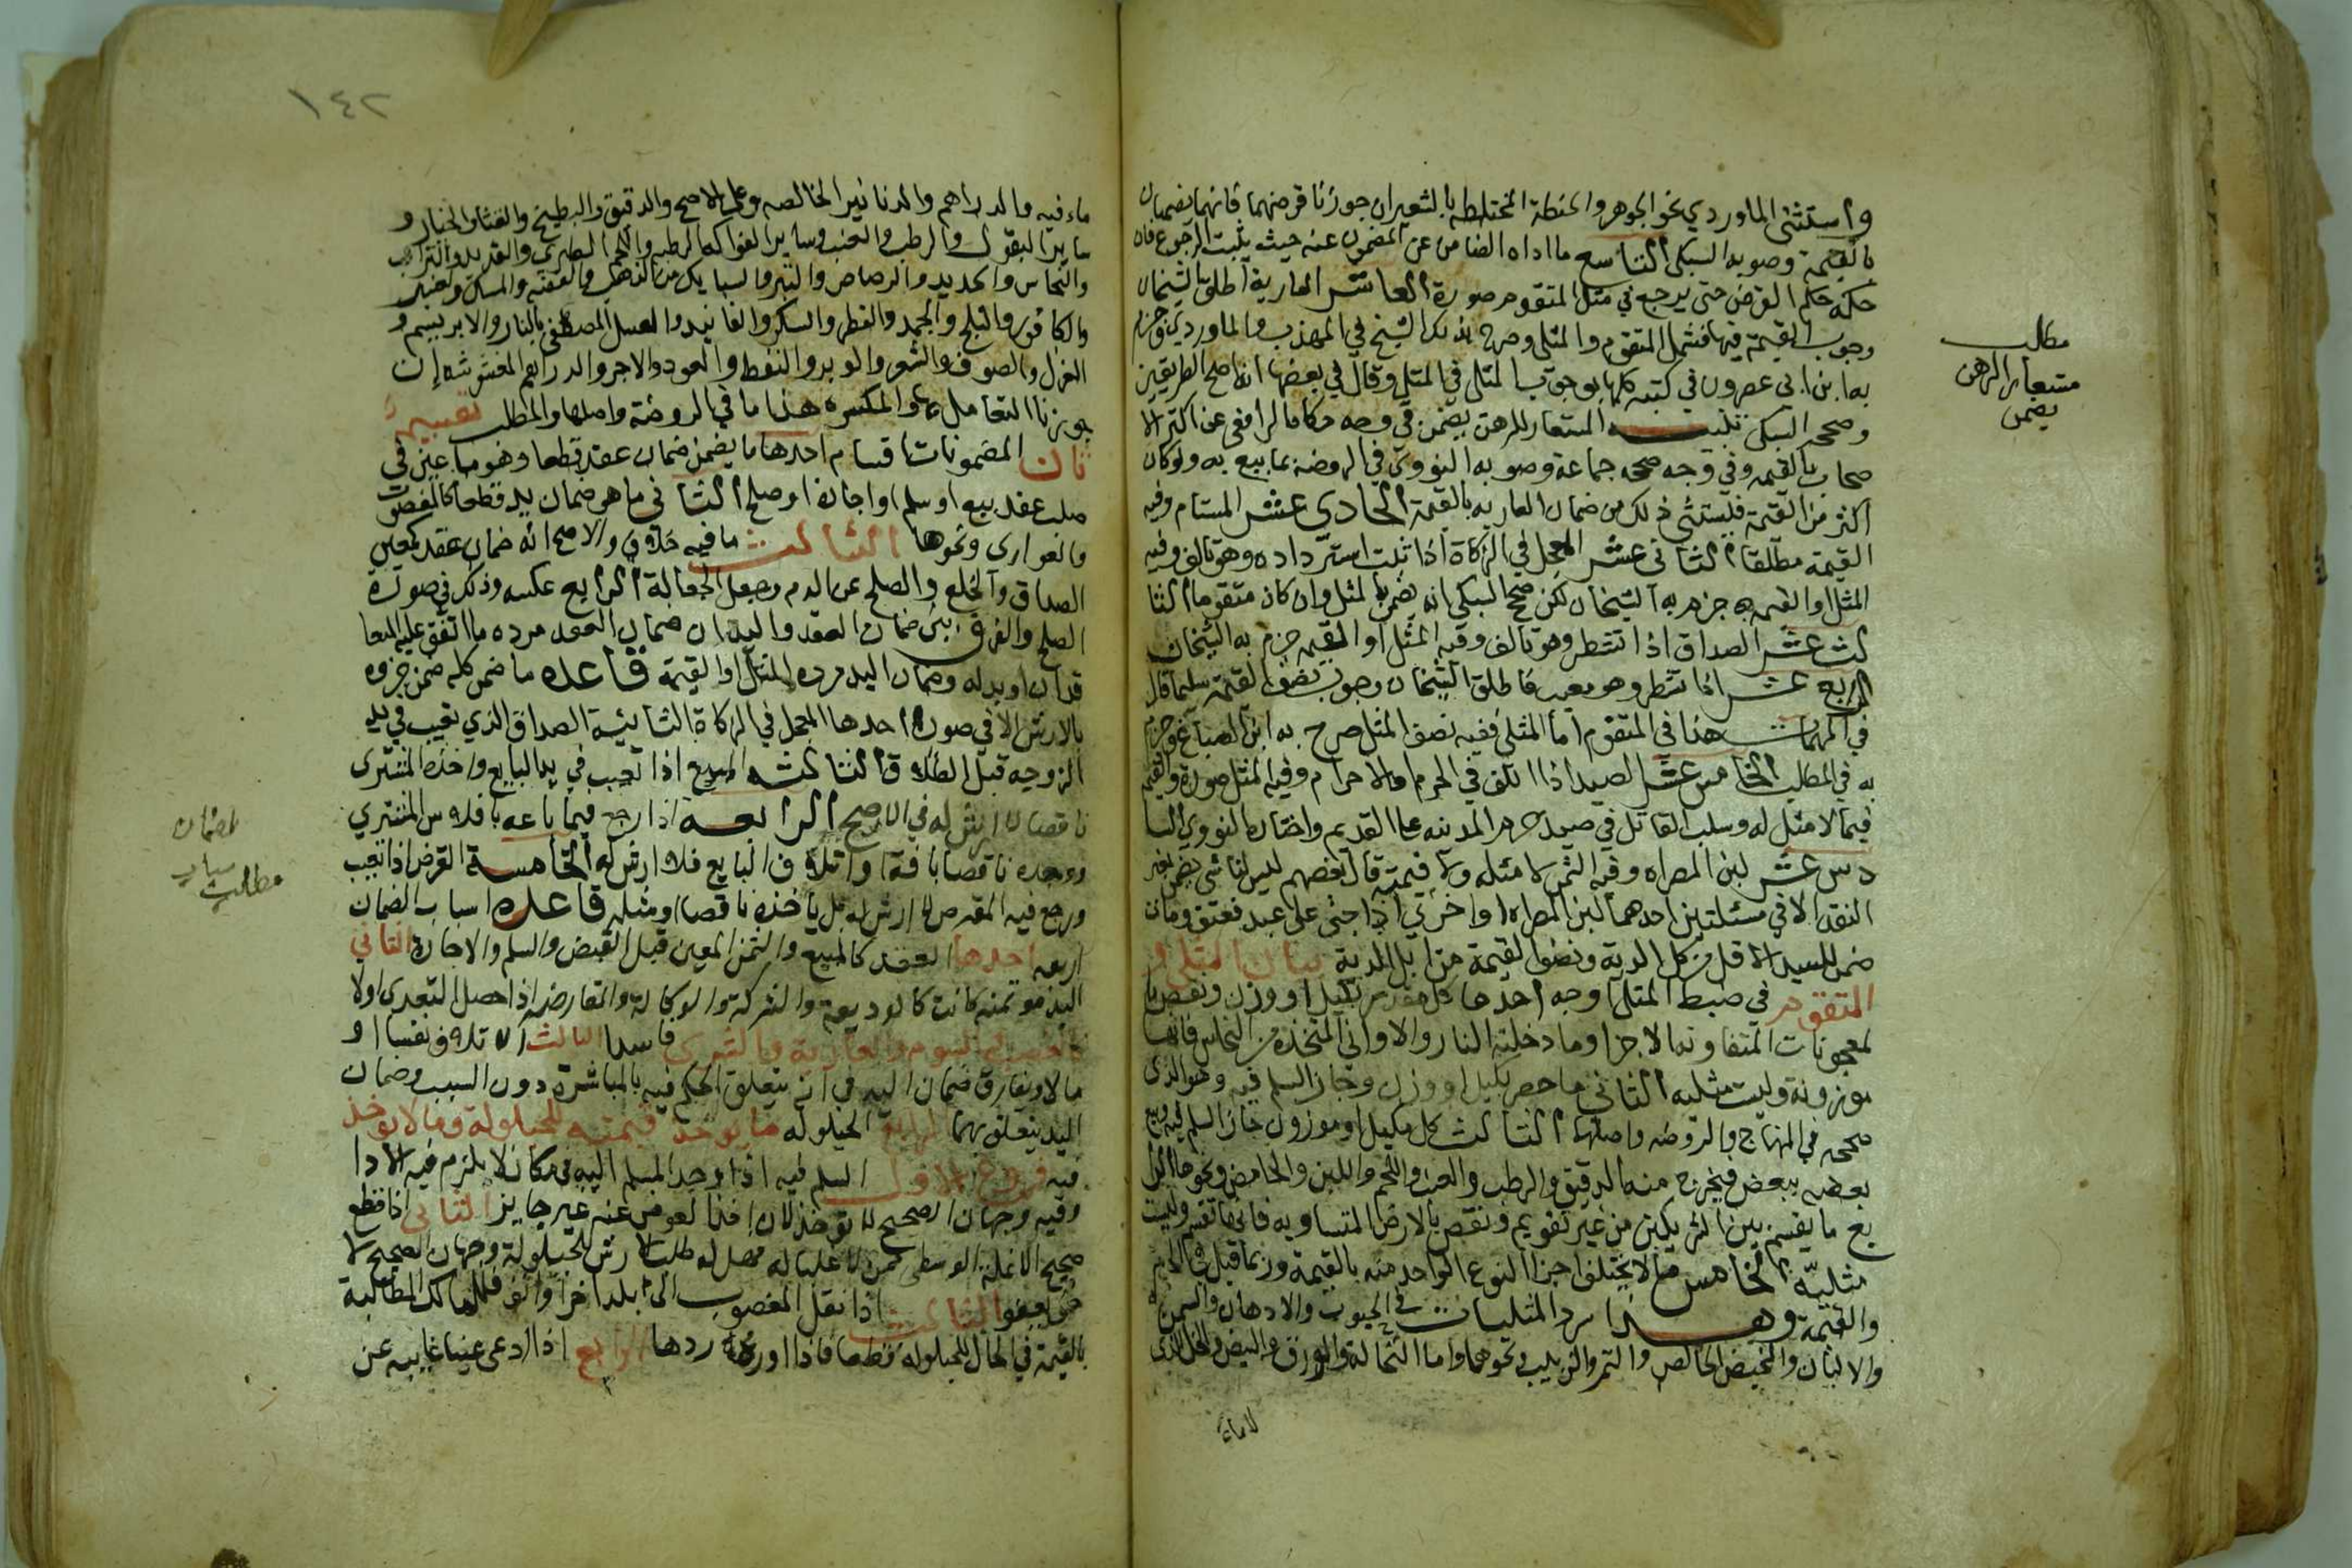 واستثنى الماوردي نحو الجوهر والحنطة المختلطة بالشعير ان جوزنا قرضهما فانهما يضمنان
بالقيمة وصوبه السبكي التاسع ما اداه الضامن عن المضمون عنه حيث يثبت الرجوع فان
حكمه حكم القرض حتى يرجع في مثل المتقوم صورة العاشر العارية اطلق الشيخان
وجوب القيمة فيها فشمل المتقوم والمثلي وصرح بذلك الشيخ في المهذب والماوردي وجزم
به ابن ابي عصرون في كتبه كلها بوجوب المثل في المثلي وقال في بعضها انه اصح الطريقين
وصححه السبكي تنبيه المستعار للرهن يضمن في وجه حكاه الرافعي عن اكثر الا
صحاب بالقيمة وفي وجه صححه جماعة وصوبه النووي في الروضة بما بيع به ولو كان
اكثر من القيمة فليستثنى ذلك من ضمان العارية بالقيمة الحادي عشر المستام وفيه
القيمة مطلقا الثاني عشر المعجل في الزكاة اذا ثبت استرداده وهو تالف وفيه
المثل او القيمة جزم به الشيخان لكن صحح السبكي انه يضمن بالمثل وان كان متقوما الثا
لث عشر الصداق اذا تشطر وهو تالف وفيه المثل او القيمة جزم به الشيخان
الرابع عشر اذا تشطر وهو معيب فاطلق الشيخان وجوب نصف القيمة سليما قال
في المهمات هذا في المتقوم اما المثلي ففيه نصف المثل صرح به ابن الصباغ وجزم
به في المطلب الخامس عشر الصيد اذا اتلف في الحرم والاحرام وفيه المثل صورة والقيمة
فيما لا مثل له وسلب القاتل في صيد حرم المدينة على القديم واختاره النووي السا
دس عشر لبن المصراه وفيه التمر لا مثله ولا قيمته قال بعضهم ليس لنا شي يضمن بغير
النقد الا في مسئلتين احدهما لبن المصراه والاخرى اذا جنى على عبد فعتق ومات
ضمن للسيد الاقل من كل الدية ونصف القيمة من ابل الدية بيان المثلي و
المتقوم في ضبط المثلي اوجه احدها كل مقدر بكيل او وزن ونقض با
لمعجونات المتفاوتة الاجزا وما دخلته النار والاواني المتخذة من النحاس فانها
موزونة وليست مثليه الثاني ما حصر بكيل او وزن وجاز السلم فيه وهو الذي
صححه في المنهاج والروضه واصلها الثالث كل مكيل او موزون جاز السلم فيه وبيع
بعضه ببعض فيخرج منه الدقيق والرطب والعنب واللحم واللبن والحامض ونحوها الرا
بع ما يقسم بين الشريكين من غير تقويم ونقض بالارض المتساويه فانها تقسم وليست
مثليه الخامس ما لا يختلف اجزا النوع الواحد منه بالقيمة وربما قيل في الجرم
والقيمة وهـذا سرد المثليات الحبوب والادهان والسمن
والالبان والمخيض الخالص والتمر والزبيب ونحوهما واما النخالة والورق والبيض والخل الذي
لا ماء
مطلب
مستعار الرهن
يضمن
١٤٢
ماء فيه والدراهم والدنانير الخالصه وعلى الاصح والدقيق والبطيخ والقثا والخيار و
سائر البقول والرطب والعنب وسائر الفواكه الرطبه واللحم الطري والقديد والتراب
والنحاس والحديد والرصاص والتبر والسبايك من الذهب والفضه والمسك والعنبر
والكافور والثلج والجمد والقطن والسكر والفانيد والعسل المصفى بالنار والابريسم و
الغزل والصوف والشعر والوبر والنفط والعود والاجر والدراهم المغشوشه ان
جوزنا التعامل بها والمكسره هذا ما في الروضة واصلها والمطلب تقسيم
ثان المضمونات اقسام احدها ما يضمن ضمان عقد قطعا وهو ما عين في
صلب عقد بيع او سلم او اجارة او صلح الثاني ما هو ضمان يد قطعا كالمغصوب
والعواري ونحوها الثالث ما فيه خلاف والاصح انه ضمان عقد كمعين
الصداق والخلع والصلح عن الدم وجعل الجعالة الرابع عكسه وذلك في صورة
الصلح والفرق بين ضمان العقد واليد ان ضمان العقد مرده ما اتفق عليه المتعا
قدان او بدله وضمان اليد مرده المثل او القيمة قاعده ما ضمن كله ضمن جزوه
بالارش الا في صورة احدها المعجل في الزكاة الثانية الصداق الذي تعيب في يد
الزوجه قبل الطلاق الثالثه المبيع اذا تعيب في يد البايع واخذه المشتري
ناقصا لا ارش له في الاصح الرابعه اذا رجع فيما باعه بافلاس المشتري
ووجده ناقصا بافة او اتلاف البايع فلا ارش له الخامسة القرض اذا تعيب
ورجع فيه المقرض لا ارش له بل ياخذه ناقصا او مثله قاعده اسباب الضمان
اربعه احدها العقد كالمبيع والثمن المعين قبل القبض والسلم والاجارة الثاني
اليد موتمنه كانت كالوديعة والشركة والوكالة والمقارضه اذا حصل التعدي اولا
كالغصب والسوم والعارية والشرى فاسدا الثالث الاتلاف نفسا او
مالا ويفارق ضمان اليد في انه يتعلق الحكم فيه بالمباشرة دون السبب وضمان
اليد يتعلق بهما الرابع الحيلوله ما يوخذ قيمته للحيلولة وما لا يوخذ
فيه فروع الاول السلم فيه اذا وجد المسلم اليه في مكان لا يلزم فيه الادا
وفيه وجهان الصحيح لا توخذ لان اخذ العوض عنه غير جايز الثاني اذا قطع
صحيح الانملة الوسطى ممن لا عليا له فهل له طلب الارش للحيلولة وجهان الصحيح لا
حتى يعفو الثالث اذا نقل المغصوب الى بلد اخر او ابق فللمالك المطالبة
بالقيمة في الحال للحيلوله قطعا فاذا رده ردها الرابع اذا ادعى عينا غايبه عن
لضمان
مطالب